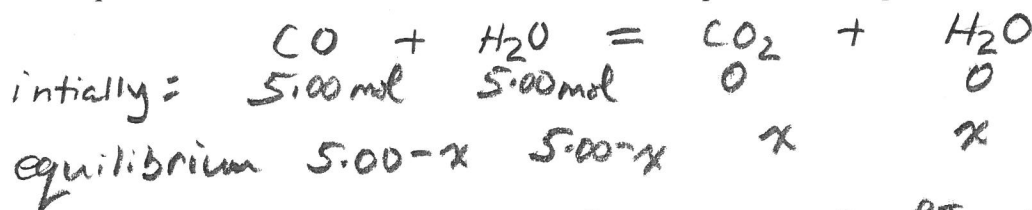 CO + H₂O = CO₂ + H₂O
intially: 5.00 mol 5.00 mol 0 0
equilibrium 5.00-x 5.00-x x x